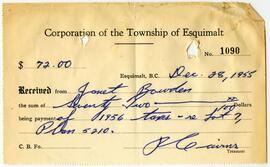 Corporation of the Township of Esquimalt
No. 1090
$ 72.00
Esquimalt, B.C. Dec. 28, 1955
Received from Janet Bowden
the sum of Seventy Two xx/100 Dollars
being payment of 1956 taxes - re Lot 7,
Plan 5210.
P Cairns
Treasurer